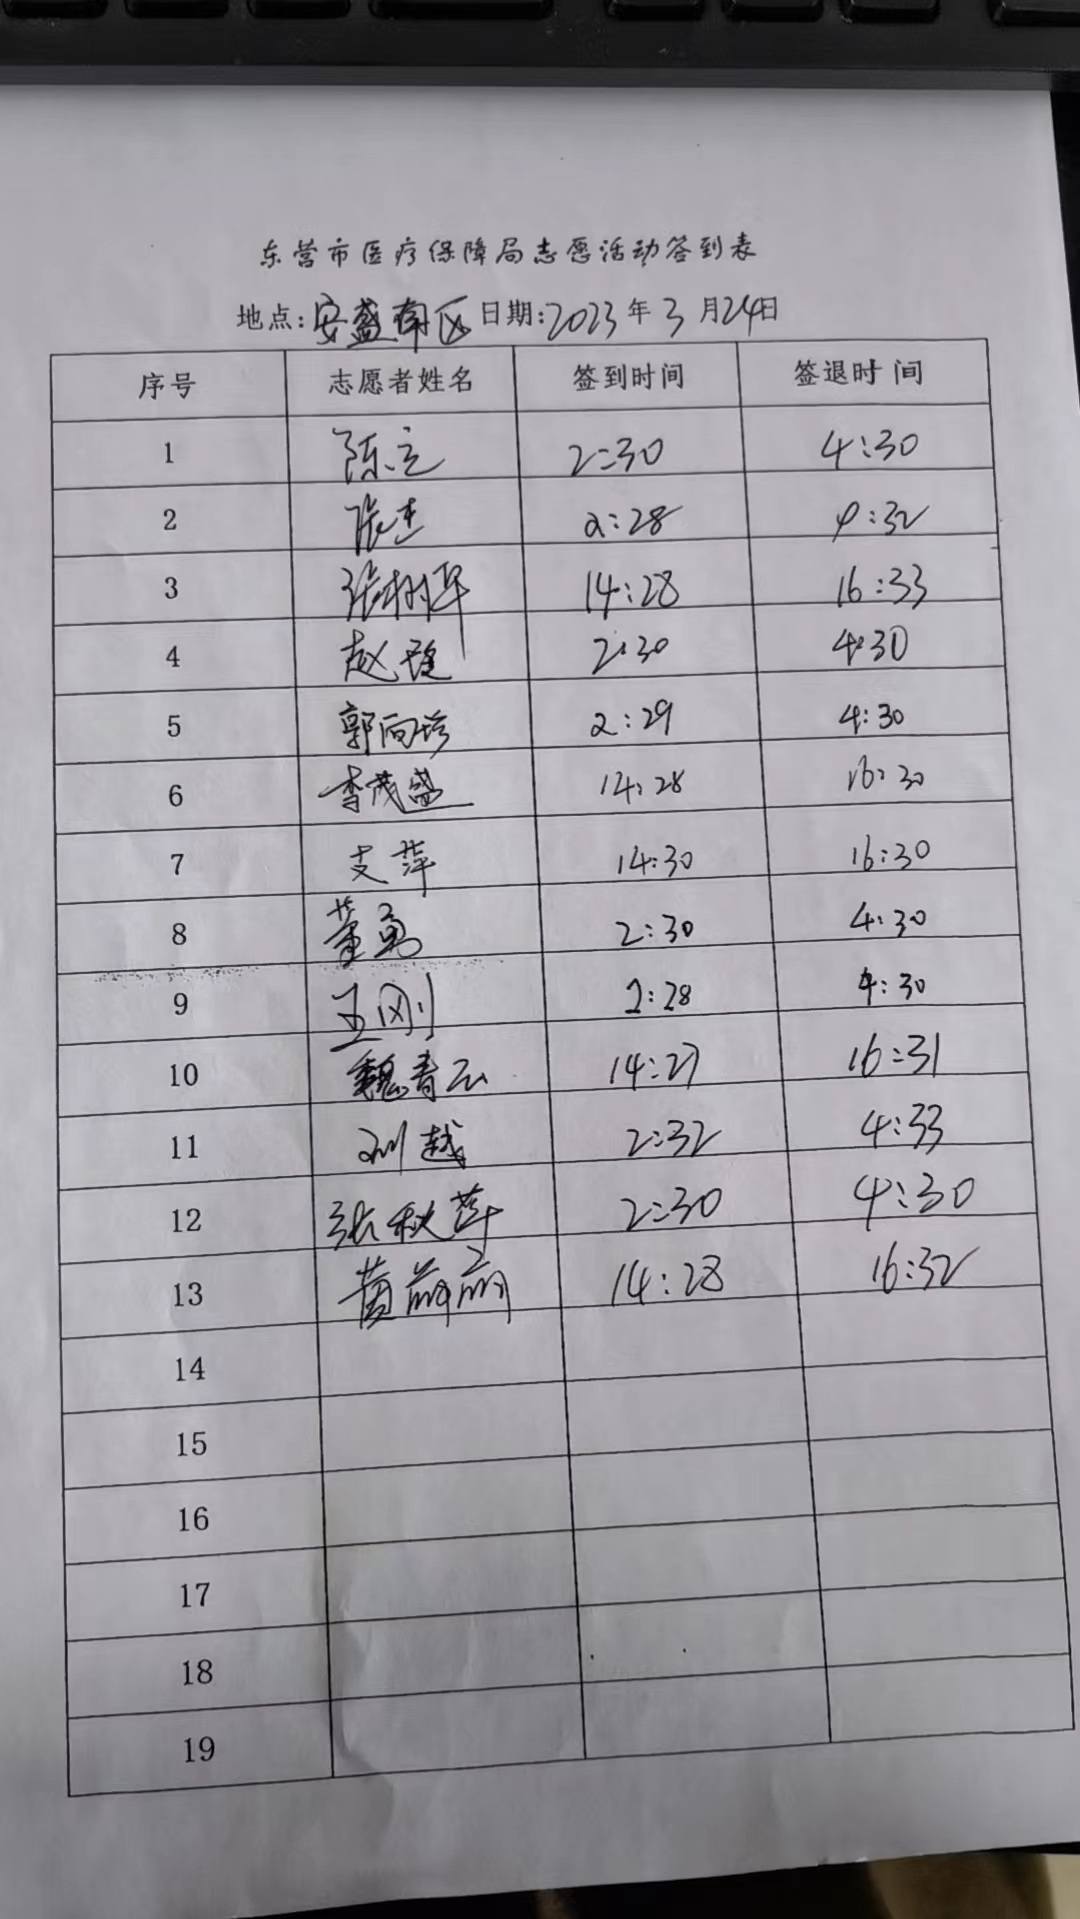 东营市医疗保障局志愿活动签到表
地点:安盛南区 日期:2023年3月24日
序号 志愿者姓名 签到时间 签退时间
1 陈立 2:30 4:30
2 张杰 2:28 4:32
3 张树军 14:28 16:33
4 赵 2:30 4:30
5 郭向珍 2:29 4:30
6 李茂盛 14:28 16:30
7 支萍 14:30 16:30
8 董勇 2:30 4:30
9 王刚 2:28 4:30
10 魏青云 14:27 16:31
11 刘越 2:32 4:33
12 张秋萍 2:30 4:30
13 黄丽丽 14:28 16:32
14
15
16
17
18
19